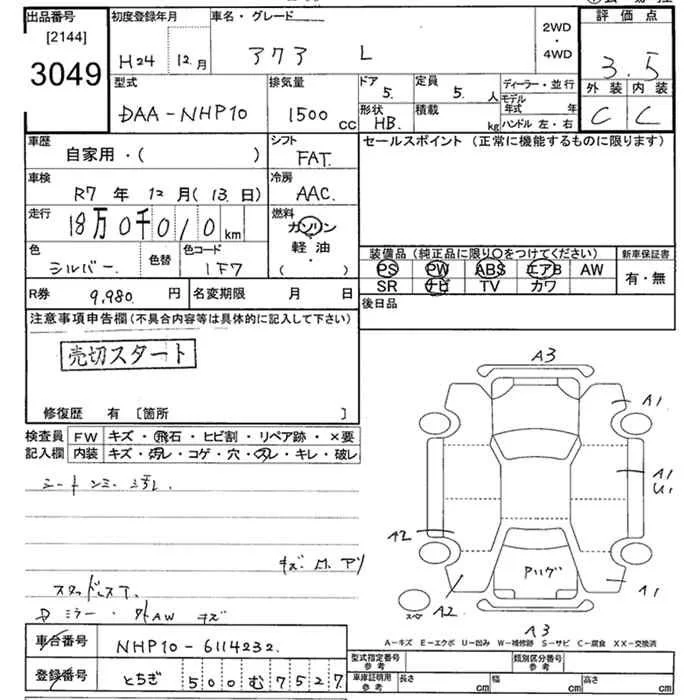 出品番号
[2144]
3049
初度登録年月
H24 12.月
車名・グレード
アクア L
2WD
・
4WD
評価点
3.5
外装 内装
C C
型式
DAA-NHP10
排気量
1500 CC
ドア
5.
定員
5. 人
形状
HB.
積載
kg
ディーラー・並行
モデル年式 年
ハンドル 左・右
車歴
自家用・( )
シフト
FAT.
セールスポイント (正常に機能するものに限ります)
車検
R7 年 12 月 ( 13. 日)
冷房
AAC.
走行
18万0千010 km
燃料
ガソリン
軽油
( )
色
シルバー.
色替
色コード
1F7
装備品 (純正品に限り○をつけてください)
PS PW ABS エアB AW
SR ナビ TV カワ
新車保証書
有・無
R券 9,980. 円
名変期限 月 日
後日品
注意事項申告欄(不具合内容等は具体的に記入して下さい)
売切スタート
修復歴 有 [箇所 ]
検査員記入欄
FW キズ・飛石・ヒビ割・リペア跡・×要
内装 キズ・汚レ・コゲ・穴・スレ・キレ・破レ
シートシミ・汚れ.
スタッドレスT.
ミラー・外AW キズ
A3
A1
A1
U1
A2
A2
A1
A3
スペア
A-キズ E-エクボ U-凹み W-補修跡 S-サビ C-腐食 XX-交換済
車台番号 NHP10-6114232.
登録番号 とちぎ 500 む 7527
型式指定番号 参考
類別区分番号 参考
車庫証明用 参考
長さ cm
幅 cm
高さ cm